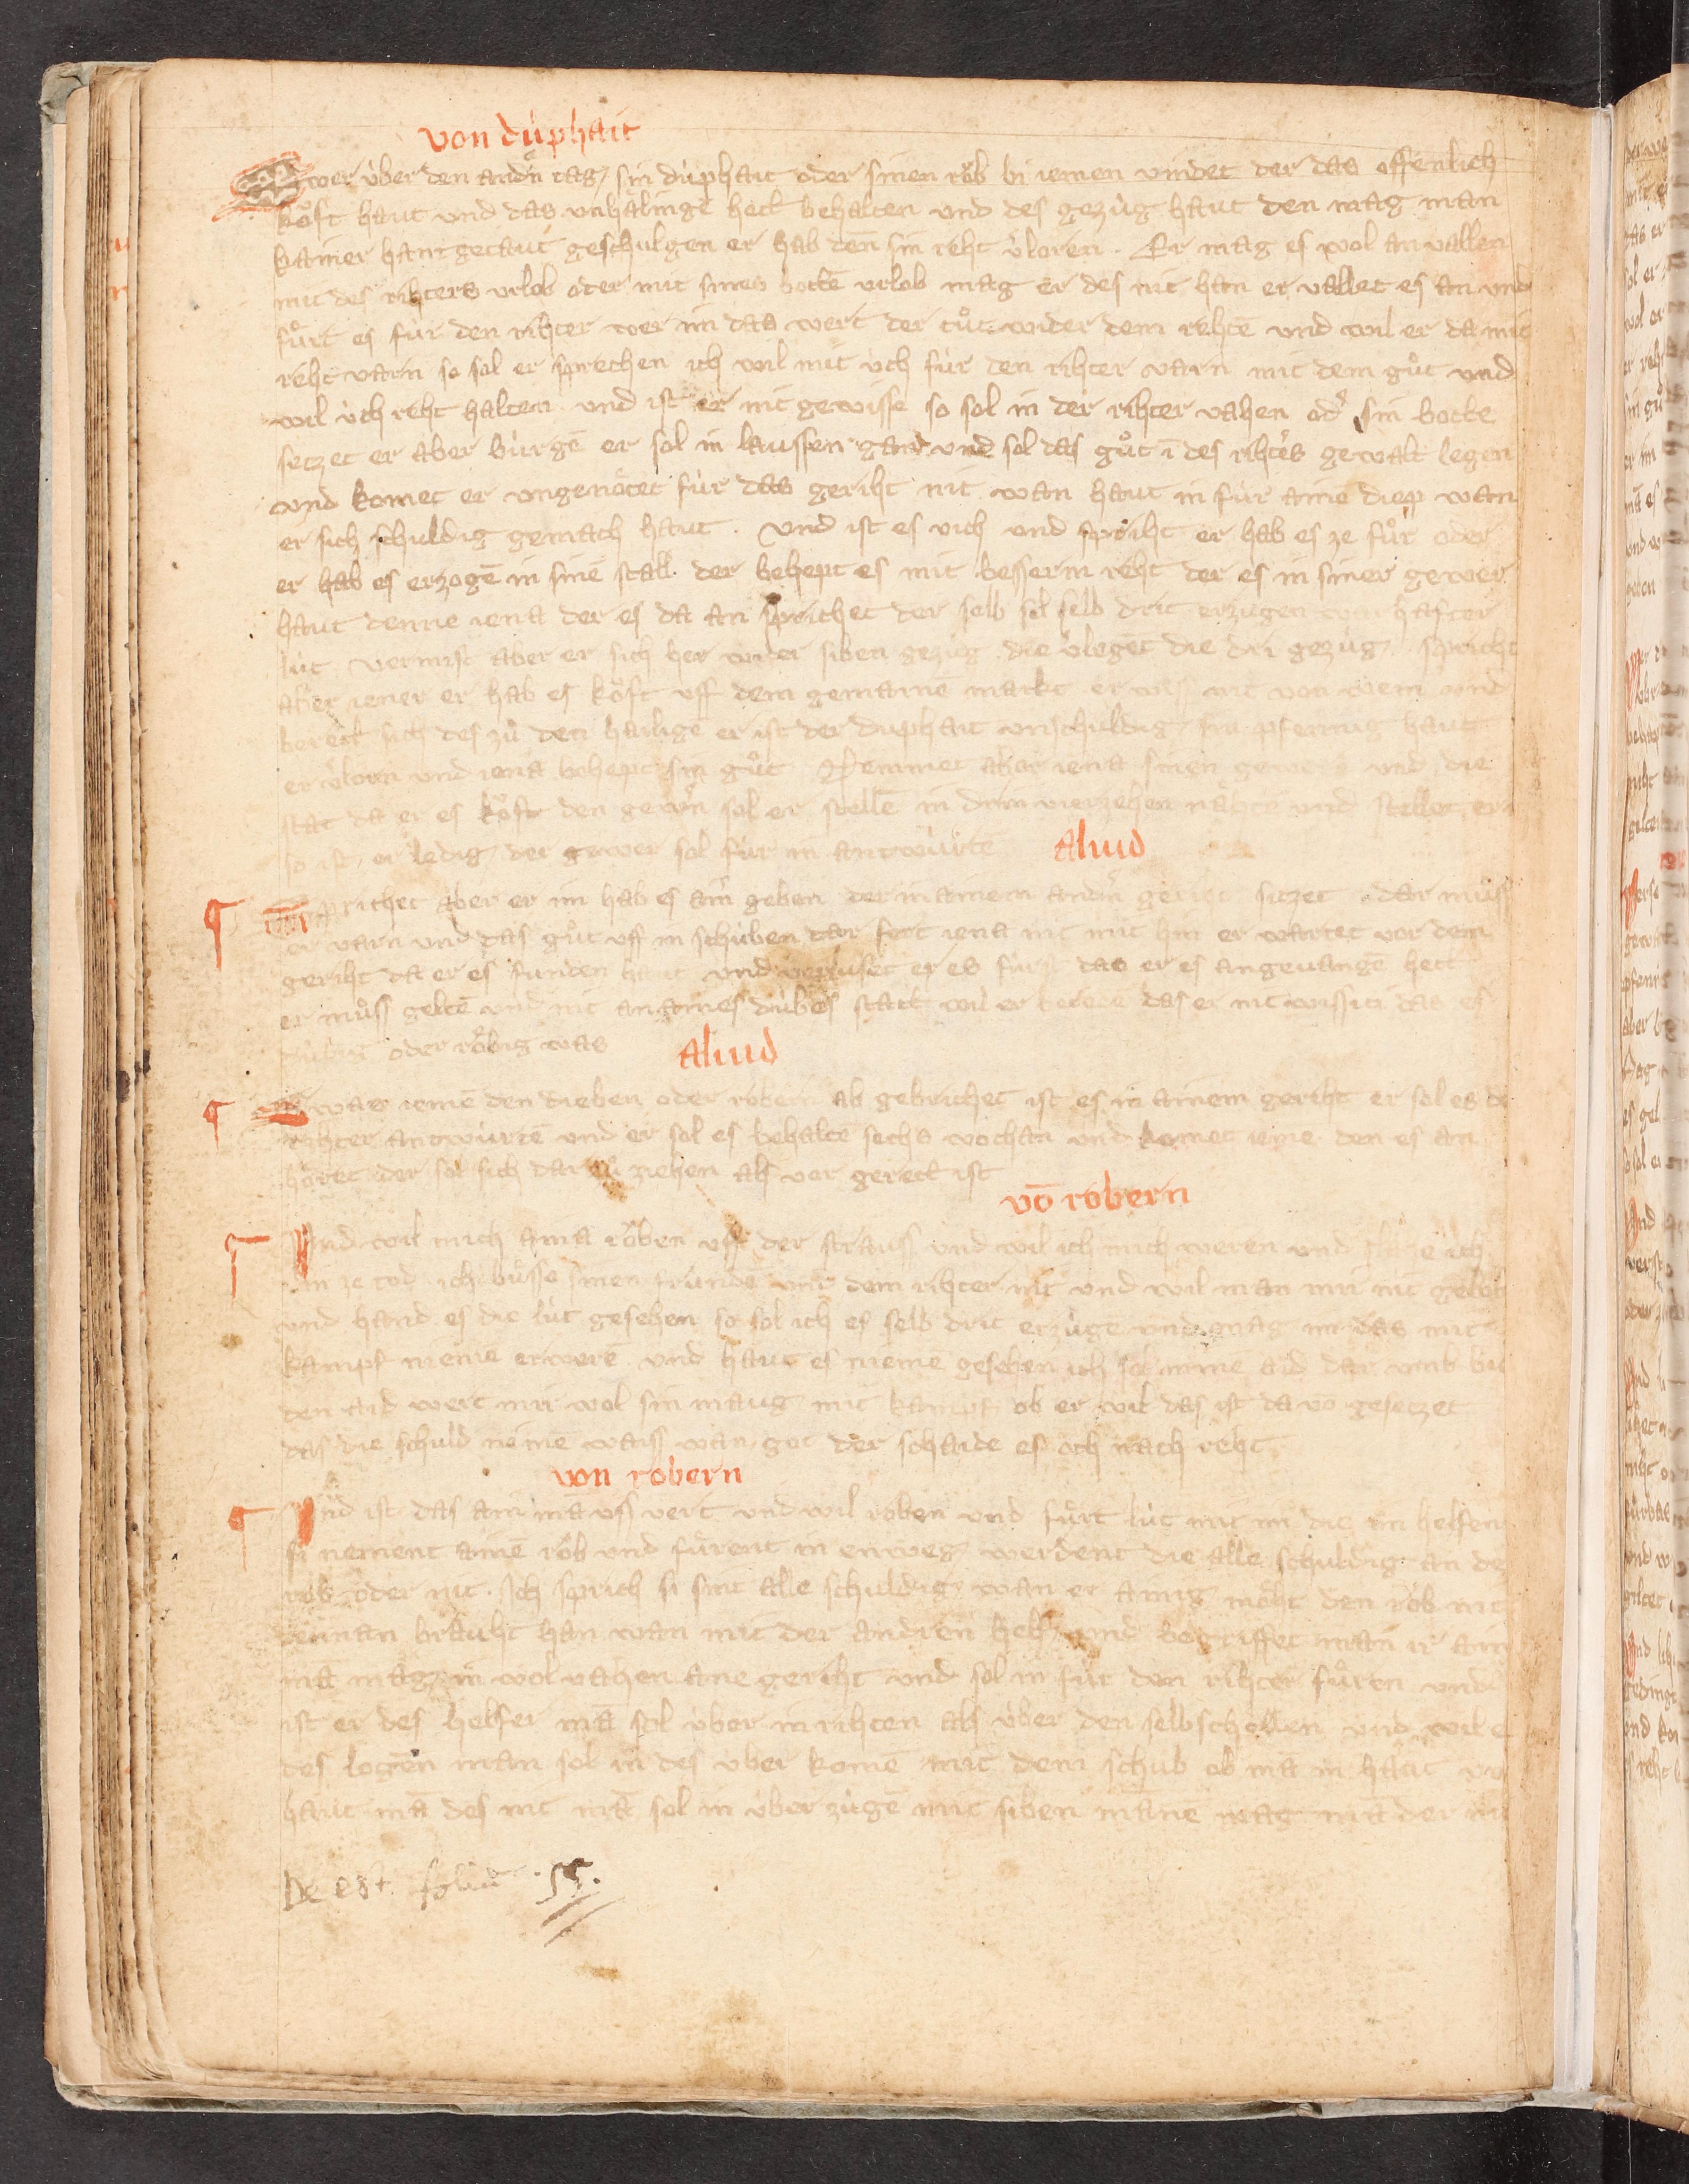 von dúphait
Swer úber den andn̄ tag sin dúphait oder sinen rob̊ bi iemen vindet der das offenlich
kȍft haut vnd das vnhȧlinge hett behalten vnd des gezúg haut den mag man
kainer hantgetaut geschulgen er hab den̄ sin reht v̓loren . Er mag es wol an vallen
mit des rihters vrlob oder mit sines bottē vrlob mag er des nit han er vallet es an vnd
fůrt es fúr den rihter wer im das wert der tůt wider dem rehtē vnd wil er da mit
reht varn so sol er sprechen ich wil mit úch fúr den rihter varn mit dem gůt vnd
wil úch reht halten vnd ist er nit gewisse so sol in der rihter vahen od̓ sin botte
setzet er aber búrgē er sol in laussen gan vnd sol das gůt ī des riht̓s gewalt legen
vnd komet er vngenȯtet fúr das geriht nit man haut in fúr ainē diep wan
er sich schuldig gemach haut . vnd ist es vich vnd spriht er hab es ze fůr oder
er hab es erzogē in sinē stall der behept es mit besserm reht der es in siner gewer
haut denne iena der es da an sprichet der selb sol selb drit erzúgen warhafter
lút vermist aber er sich her wider siben gezúg die v̓legēt die dri gezúg . spricht
aber iener er hab es kȍft vff dem gemainē markt er wiss nit von wem vnd
berett sich des zů den hailigē er ist der duphait vnschuldig sin pfennig haut
er v̓lorn vnd iena behept sin gůt Nemmet aber iena sinen gewern vnd die
stat da er es kȍft den gewn̄ sol er stellē in drin vierzehen nähtē vnd stellet er
so ist er ledig der gewer sol fúr in antwúrtē
Aliud
Sprichet aber er im hab es aim̄ geben der in ainem andn̄ geriht sitzet dar můss
er varn vnd das gůt vff in schúben dar fert iena nit mit hin er wartet vor dem
geriht da er es funden haut vnd er es fúr das er es angeuangē hett
er můss geltē vnd nit an aines dúbes statt wil er beredē das er nit wissiti das es
dúbig oder rȍbig was
Aliud
Swas iemē den dieben oder rȍbern ab gebrichet ist es in ainem geriht er sol es de
rihter antwúrtē vnd er sol es behaltē sechs wochan vnd komet ieme den es an
hȯret der sol sich dar zů ziehen als vor gerett ist
vō robern
Vnd wil mich aina rȍben vff der strauss vnd wil ich mich weren vnd slahe ich
in ze tod ich bůsse sinen frúndē vnd dem rihter nit vnd wil man mir nit gelob
vnd hand es die lút gesehen so sol ich es selb drit erzúgē vnd mag mir das mit
kampf nieme erwerē vnd haut es niemē gesehen ich sol minē aid dar vmb biet
den aid wert mir wol sin maug mit kampf ob er wil das ist da vō gesetzet
das die schuld niemē waiss wan got der schaide es och nach reht
von robern
Vnd ist das ain mā vss vert vnd wil roben vnd fůrt lút mit im die im helfen
si nement ainē rȍb vnd fůrent in enweg werdent die alle schuldig an de
rȍb oder nit . Ich sprich si sint alle schuldig wan er ainig mȯht den rȍb nit
dennan brauht han wan mit der andren helf vnd begriffet man ir ain
mā mag in wol vahen ane geriht vnd sol in fúr den rihter fůren vnd
ist er des helfer mā sol úber in rihten als úber den selbschollen vnd wil e
des logen man sol in des vber komē mit dem schub ob mā in haut vn
haut mā des nit mā sol in úber zúgē mit siben manē mag mā der ni
De est foliū .55.